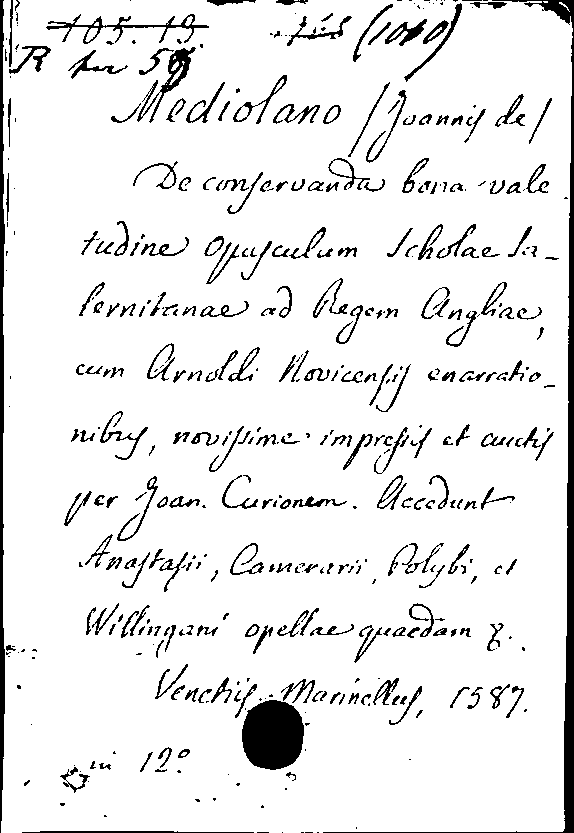 105.13. (1010)
R
Mediolano /Joannis de/
De conservanda bona vale
tudine opusculum Scholae Sa-
lernitanae ad Regem Angliae,
cum Arnoldi Novicensis enarratio-
nibus, novissime impressis et auctis
per Joan. Curionem. Accedunt
Anastasii, Camerarii, Polybi, et
Willingani opellae quaedam &.
Venetiis, Marinellus, 1587.
in 12º